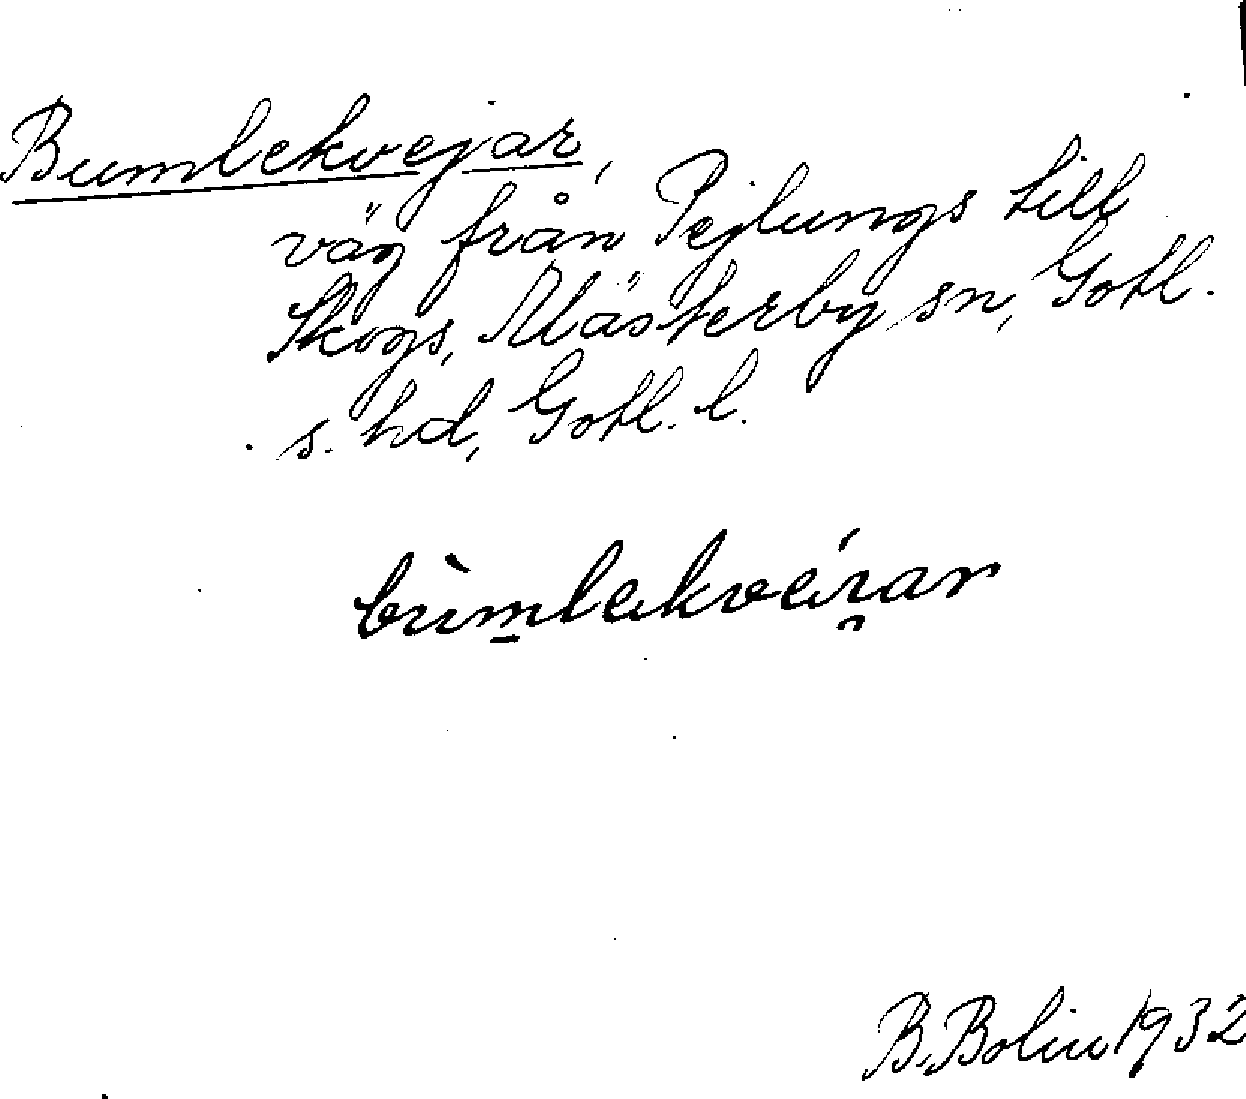 Bumlekvejar,
väg från Pejlungs till
Skogs, Mästerby sn, Gotl.
s. hd, Gotl. l.
B. Bolin 1932